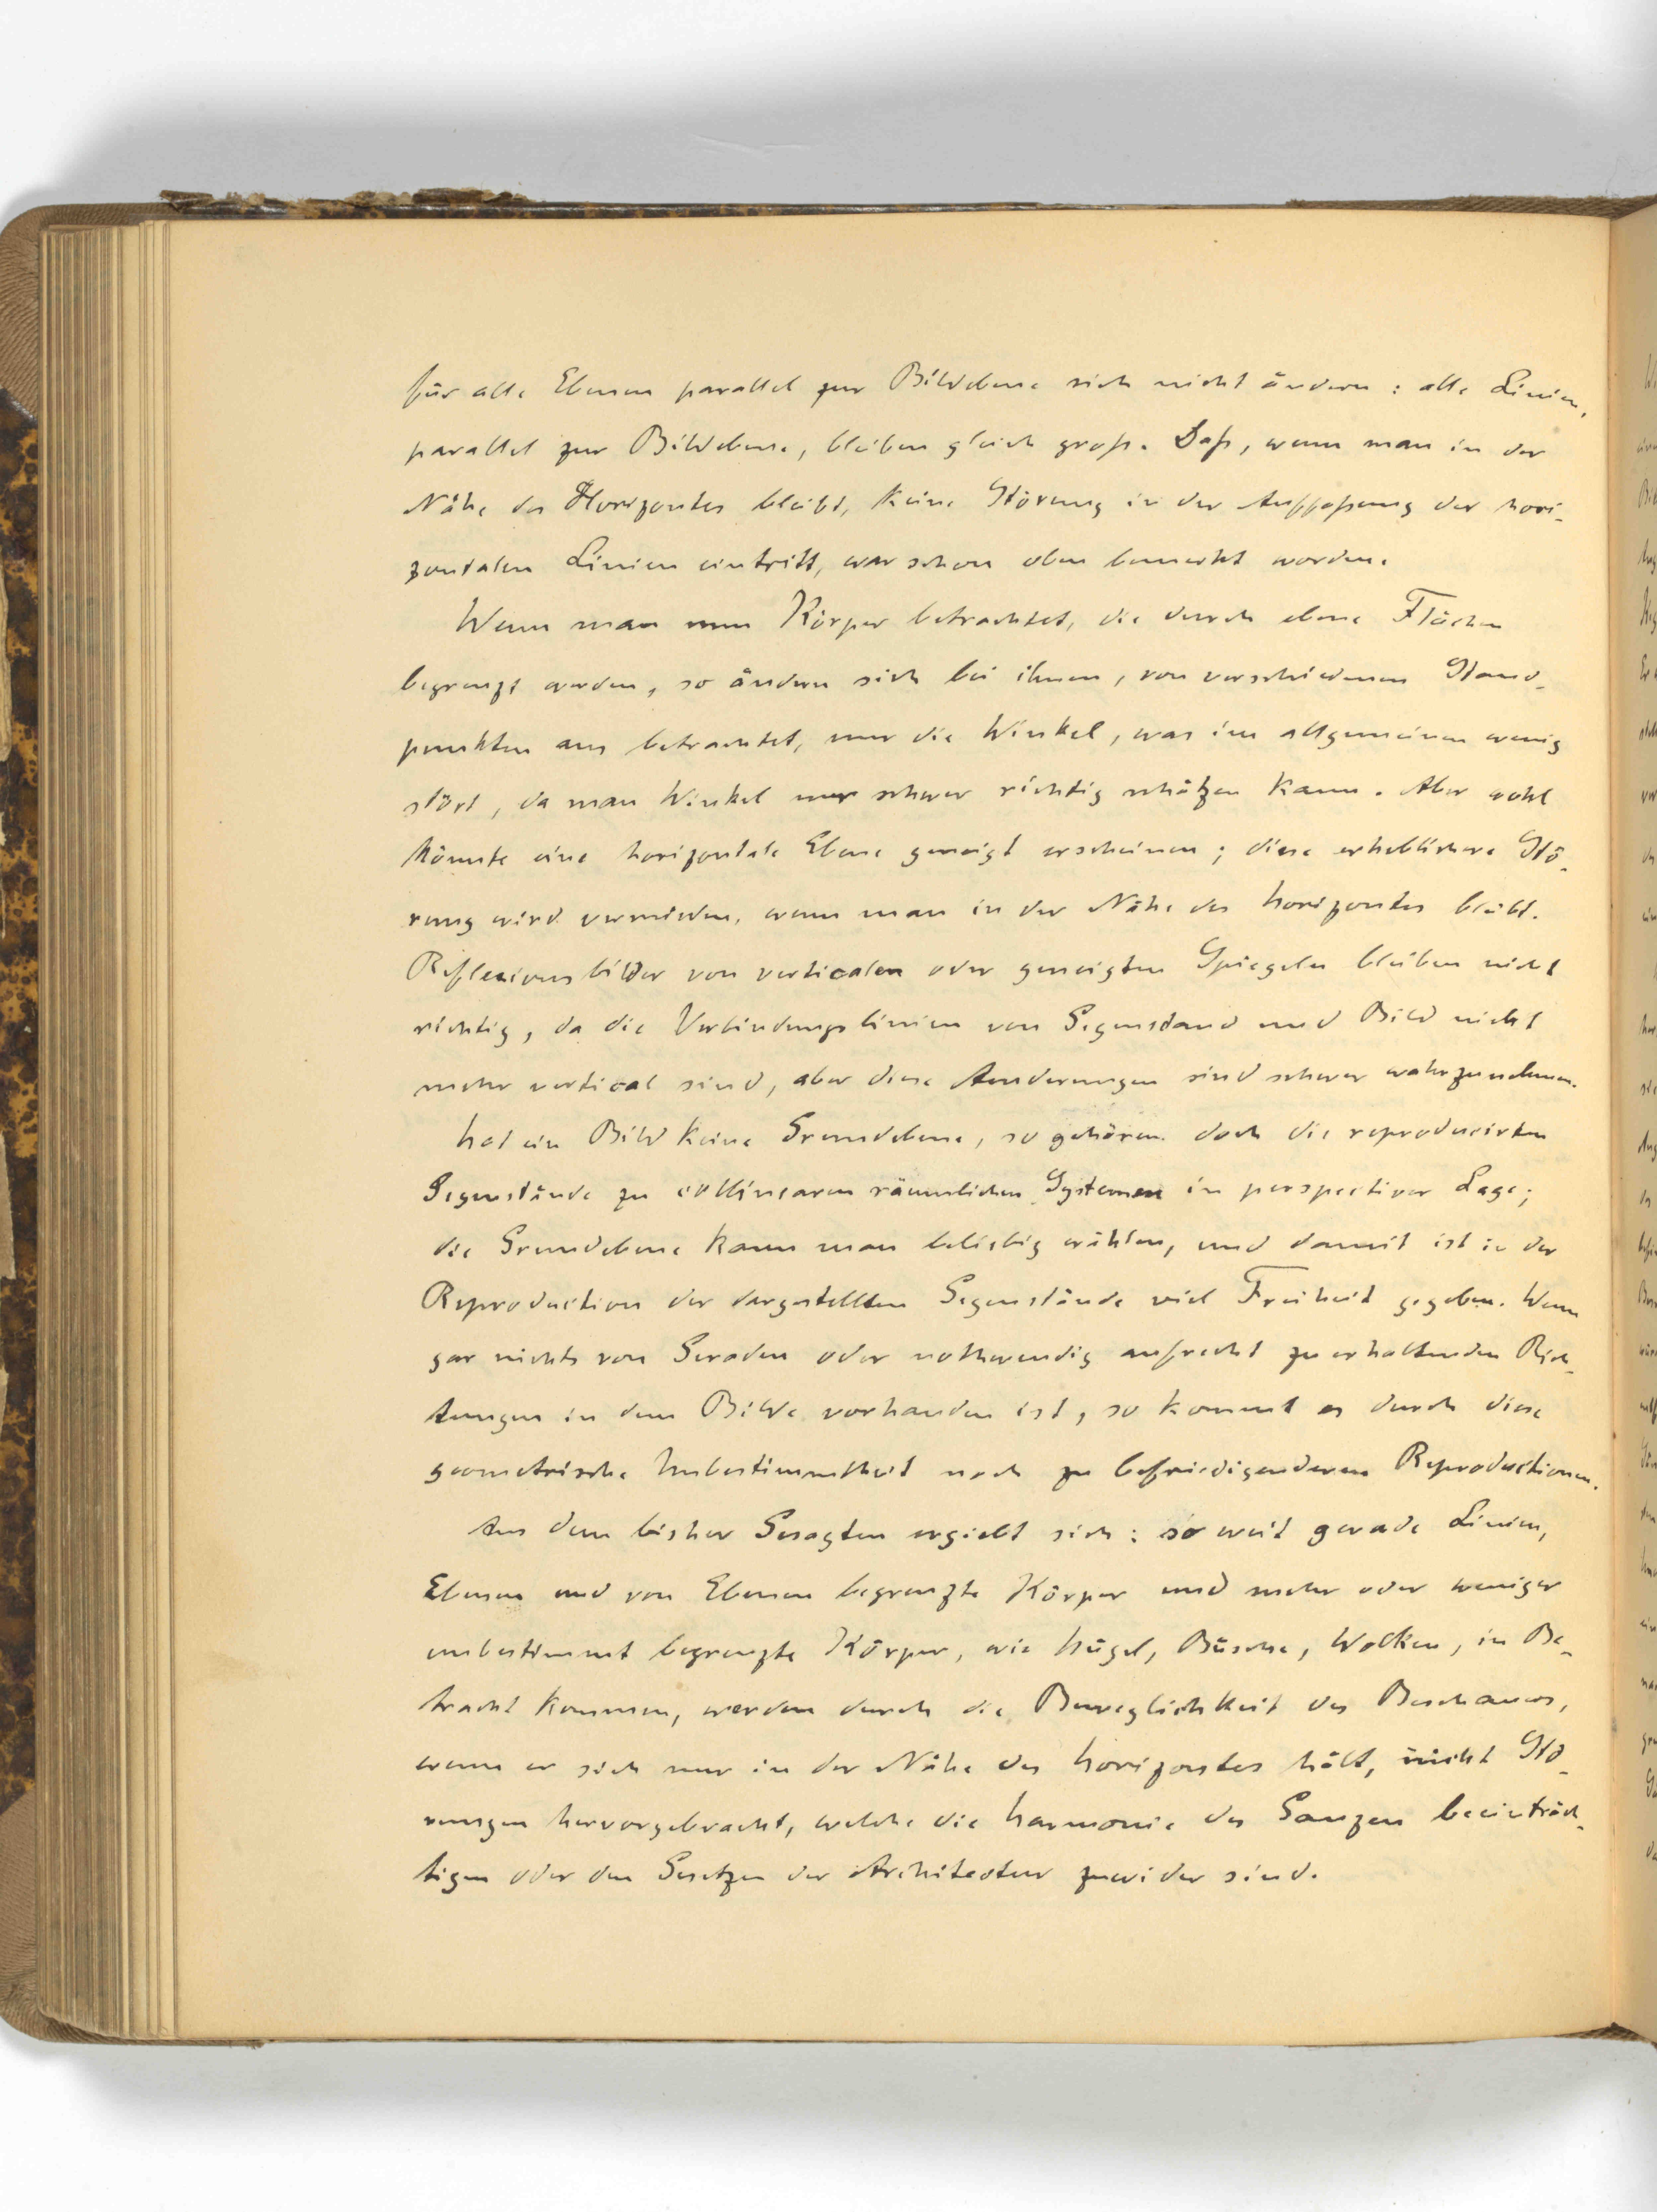 für alle Ebenen parallel zur Bildebene sich nicht ändern: alle Linien,
parallel zur Bildebene, bleiben gleich groß. Daß, wenn man in der
Nähe des Horizontes bleibt, keine Störung in der Auffaßung der hori-
zontalen Linien eintritt, war schon oben bemerkt worden.
Wenn man nun Körper betrachtet, die durch ebene Flächen
begrenzt werden, so ändern sich bei ihnen, von verschiedenen Stand-
punkten aus betrachtet, nur die Winkel, was im allgemeinen wenig
stört, da man Winkel nur schwer richtig schätzen kann. Aber wohl
könnte eine horizontale Ebene geneigt erscheinen; diese erheblichere Stö-
rung wird vermieden, wenn man in der Nähe des Horizontes bleibt.
Reflexionsbilder von verticalen oder geneigten Spiegeln bleiben nicht
richtig, da die Verbindungslinien von Gegenstand und Bild nicht
mehr vertical sind, aber diese Aenderungen sind schwer wahrzunehmen.
Hat ein Bild keine Grundebene, so gehören doch die reproducirten
Gegenstände zu collinearen räumlichen Systemen in perspectiver Lage;
die Grundebene kann man beliebig wählen, und damit ist in der
Reproduction der dargestellten Gegenstände viel Freiheit gegeben. Wenn
gar nichts von Geraden oder nothwendig aufrecht zu erhaltenden Rich-
tungen in dem Bilde vorhanden ist, so kommt es durch diese
geometrische Unbestimmtheit noch zu befriedigenderen Reproductionen.
Aus dem bisher Gesagten ergiebt sich: so weit gerade Linien,
Ebenen und von Ebenen begrenzte Körper und mehr oder weniger
unbestimmt begrenzte Körper, wie Hügel, Büsche, Wolken, in Be-
tracht kommen, werden durch die Beweglichkeit des Beschauers,
wenn er sich nur in der Nähe des Horizontes hält, nicht Stö-
rungen hervorgebracht, welche die Harmonie des Ganzen beeinträch-
tigen oder den Gesetzen der Architectur zuwider sind.